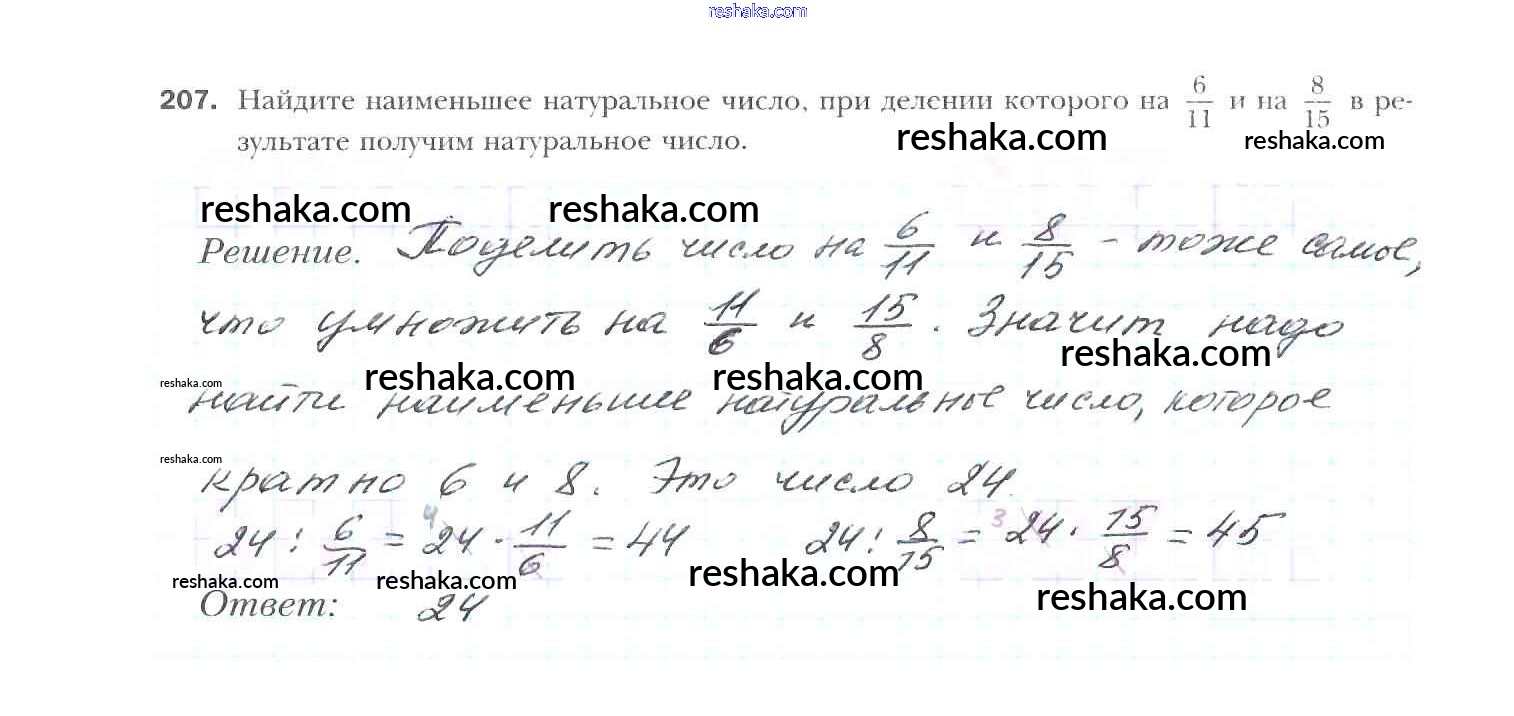 reshaka.com
207. Найдите наименьшее натуральное число, при делении которого на 6/11 и на 8/15 в ре-
reshaka.com reshaka.com
зультате получим натуральное число.
reshaka.com reshaka.com
Решение. Поделить число на 6/11 и 8/15 - тоже самое,
что умножить на 11/6 и 15/8. Значит надо
reshaka.com
reshaka.com reshaka.com reshaka.com
найти наименьшее натуральное число, которое
reshaka.com
кратно 6 и 8. Это число 24.
24 : 6/11 = 24 4 · 11/6 = 44 24 : 8/15 = 24 3 · 15/8 = 45
reshaka.com reshaka.com reshaka.com reshaka.com
Ответ: 24